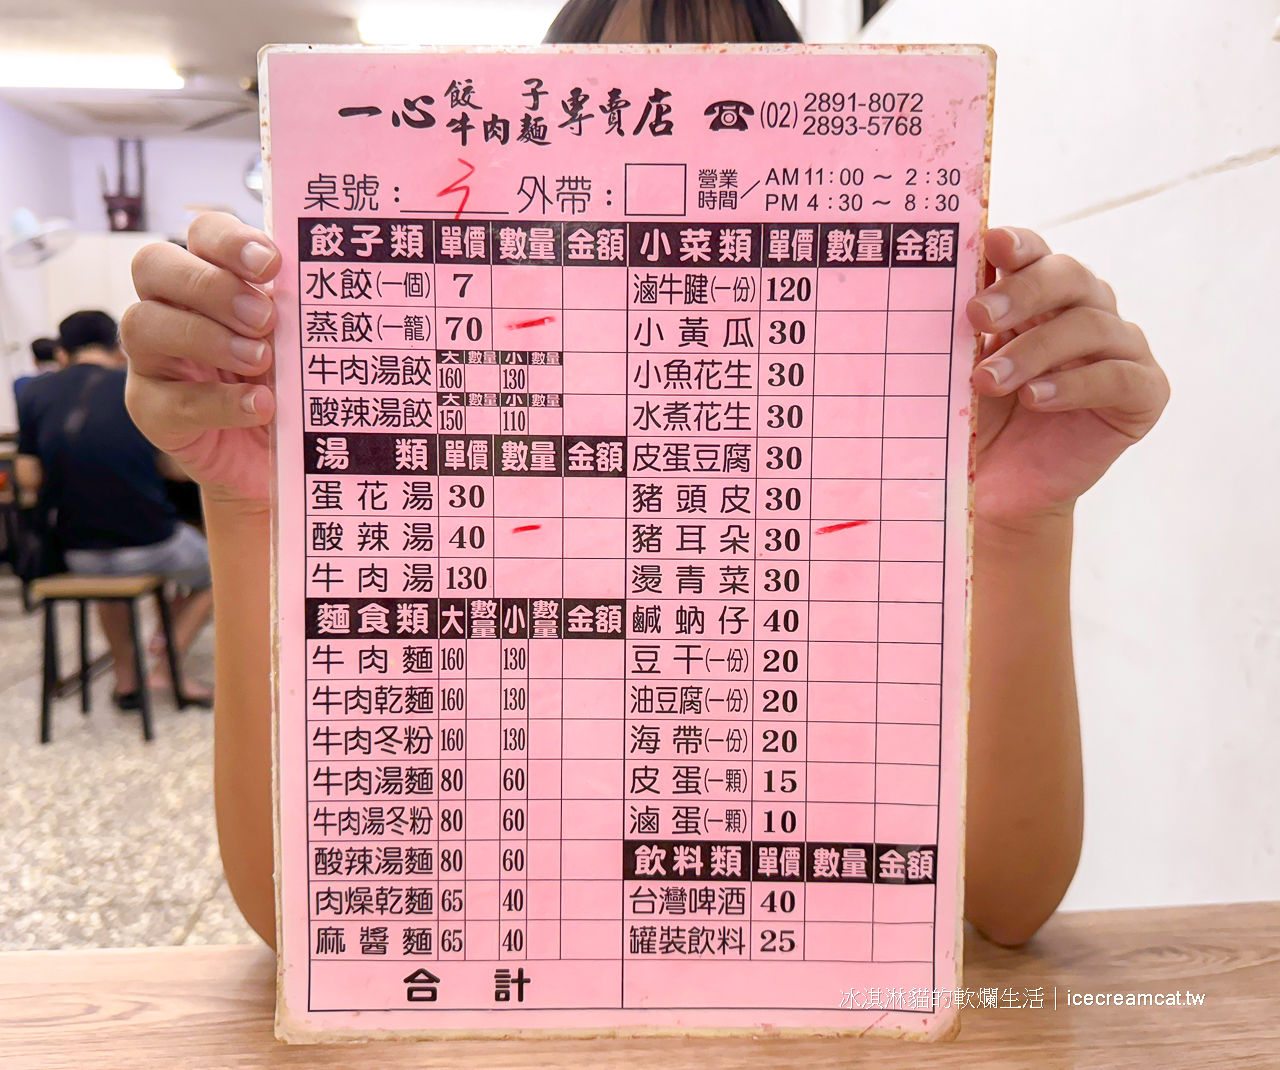 一心餃子牛肉麵專賣店 ☎(02) 2891-8072
2893-5768
桌號：
外帶：
營業時間／AM 11:00 ～ 2:30
PM 4:30 ～ 8:30
餃子類 單價 數量 金額
水餃(一個) 7
蒸餃(一籠) 70 一
牛肉湯餃 大 160 數量 小 130 數量
酸辣湯餃 大 150 數量 小 110 數量
湯類 單價 數量 金額
蛋花湯 30
酸辣湯 40 一
牛肉湯 130
麵食類 大 數量 小 數量 金額
牛肉麵 160 130
牛肉乾麵 160 130
牛肉冬粉 160 130
牛肉湯麵 80 60
牛肉湯冬粉 80 60
酸辣湯麵 80 60
肉燥乾麵 65 40
麻醬麵 65 40
合計
小菜類 單價 數量 金額
滷牛腱(一份) 120
小黃瓜 30
小魚花生 30
水煮花生 30
皮蛋豆腐 30
豬頭皮 30
豬耳朵 30 一
燙青菜 30
鹹蚋仔 40
豆干(一份) 20
油豆腐(一份) 20
海帶(一份) 20
皮蛋(一顆) 15
滷蛋(一顆) 10
飲料類 單價 數量 金額
台灣啤酒 40
罐裝飲料 25
冰淇淋貓的軟爛生活｜icecreamcat.tw